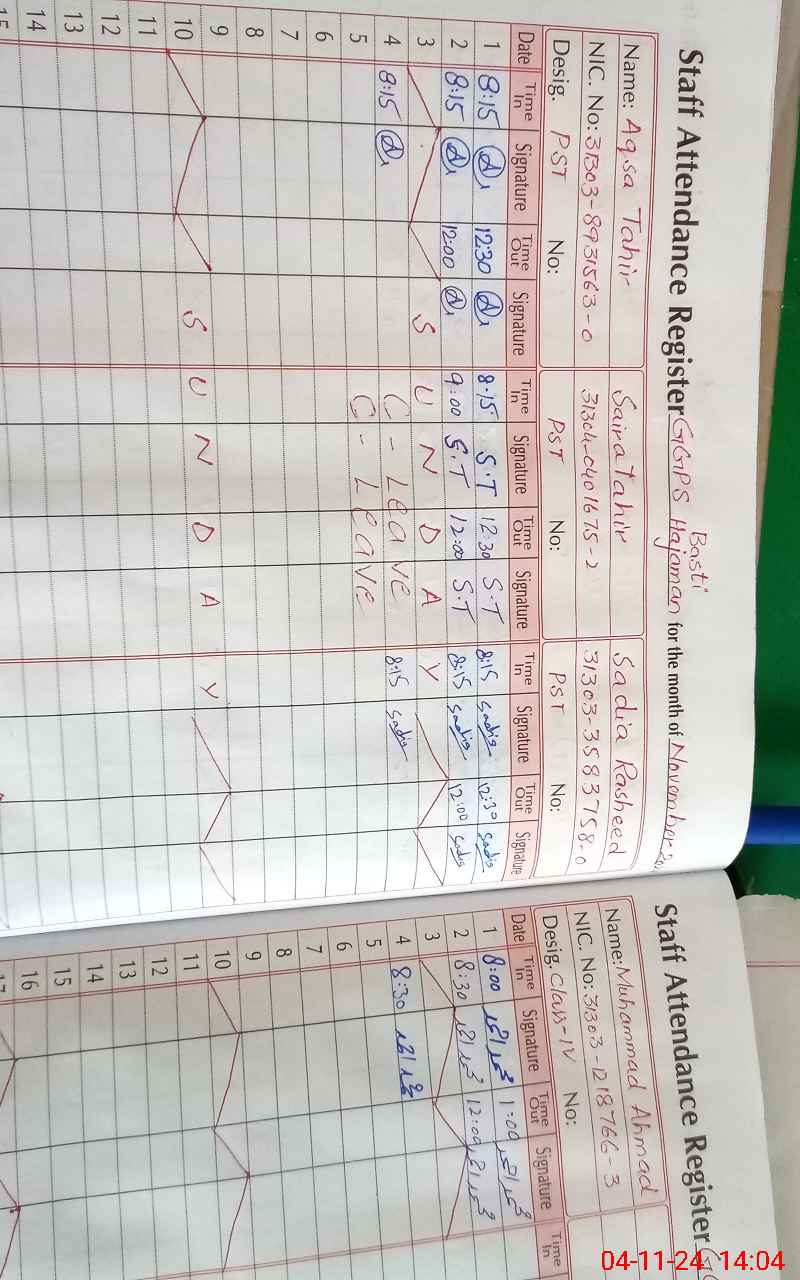 Staff Attendance Register GGPS Basti Hajaman for the month of November
Name: Aqsa Tahir Saira Tahir Sadia Rasheed
NIC. No: 31303-8931563-0 31304-0401675-2 31303-3583758-0
Desig. PST No: PST No: PST No:
Date Time In Signature Time Out Signature Time In Signature Time Out Signature Time In Signature Time Out Signature
1 8:15 12:30 8:15 S.T 12:30 S.T 8:15 Sadia 12:30 Sadia
2 8:15 12:00 9:00 S.T 12:00 S.T 8:15 Sadia 12:00 Sadia
3 S U N D A Y
4 8:15 C - Leave 8:15 Sadia
5 C - Leave
6
7
8
9
10 S U N D A Y
11
12
13
14
15
Staff Attendance Register
Name: Muhammad Ahmad
NIC. No: 31303-1218766-3
Desig. Class-IV No:
Date Time In Signature Time Out Signature Time In
1 8:00 1:00
2 8:30 12:00
3
4 8:30
5
6
7
8
9
10
11
12
13
14
15
16
17
04-11-24 14:04